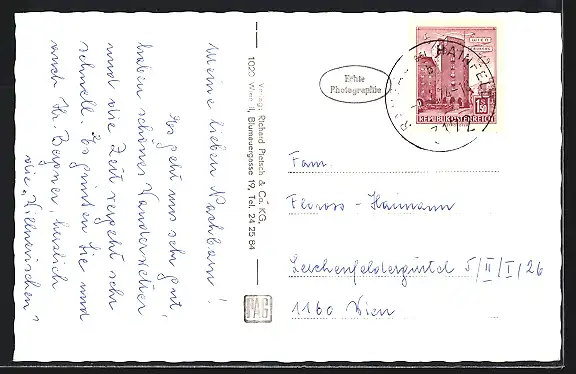 Meine lieben Nachbarn!
Es geht uns sehr gut,
haben schönes Wanderwetter
und die Zeit vergeht sehr
schnell. Es grüßen Sie und
auch Hr. Bayner, herzlich
die
Verlag: Richard Pietsch & Co. KG,
1020 Wien II, Blumauergasse 19, Tel. 24 25 84
PAG
Echte
Photographie
WIEN
HAINFELD
3172
1.50
REPUBLIK ÖSTERREICH
Fam.
Floross - Haimann
Lerchenfeldergürtel 5/II/I/26
1160 Wien